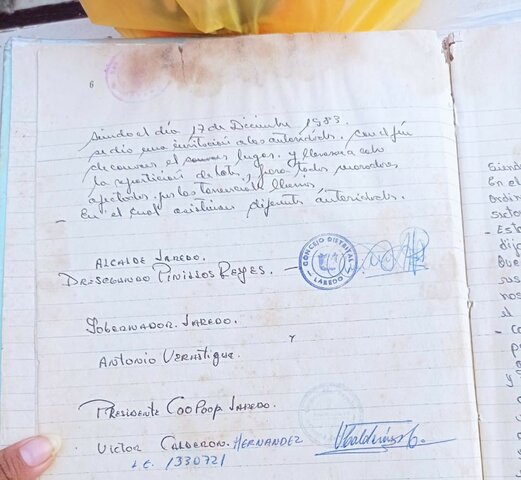 6
siendo el día 17 de Diciembre 1983.
se dio una invitación a las autoridades. con el fin
de conocer el lugar. y llevarse a cabo
la repartición de lotes, para todos moradores
afectados. por las torrenciales lluvias,
En el cual asistieron diferentes autoridades.
ALCALDE LAREDO.
DR. SEGUNDO PINILLOS REYES.
CONCEJO DISTRITAL
LAREDO
GOBERNADOR. LAREDO.
Y
ANTONIO
PRESIDENTE COOPOP. LAREDO.
VICTOR CALDERON. HERNANDEZ
L.E. 1330721
Siendo
En el
Ordin
- Esta
dij
Que
sus
nos
el
- Co